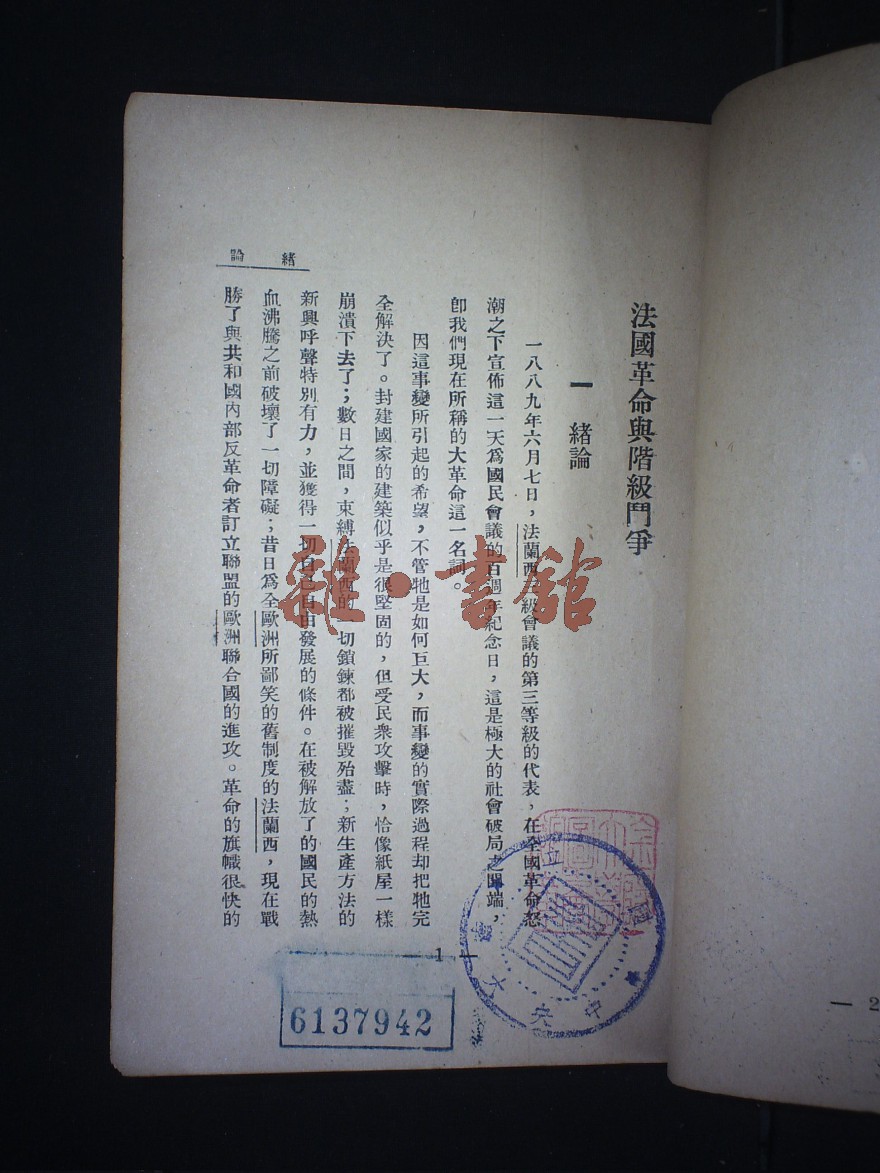 法國革命與階級鬥爭
一 緒論
一八八九年六月七日，法蘭西三級會議的第三等級的代表，在全國革命怒
潮之下宣佈這一天爲國民會議的百週年紀念日，這是極大的社會破局之開端，
卽我們現在所稱的大革命這一名詞。
因這事變所引起的希望，不管牠是如何巨大，而事變的實際過程却把牠完
全解決了。封建國家的建築似乎是很堅固的，但受民衆攻擊時，恰像紙屋一樣
崩潰下去了；數日之間，束縛法蘭西的一切鎖鍊都被摧毀殆盡；新生產方法的
新興呼聲特別有力，並獲得一切自己自由發展的條件。在被解放了的國民的熱
血沸騰之前破壞了一切障礙；昔日爲全歐洲所鄙笑的舊制度的法蘭西，現在戰
勝了與共和國內部反革命者訂立聯盟的歐洲聯合國的進攻。革命的旗幟很快的
緒論
— 1 —
雜·書館
國立中央大學
6137942
— 2